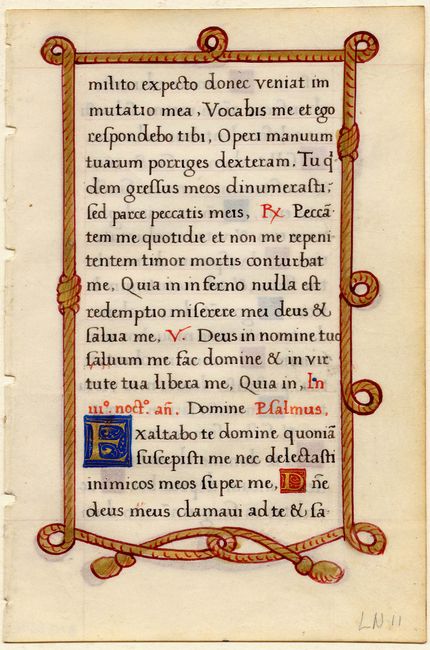 milito expecto donec veniat im
mutatio mea, Vocabis me et ego
respondebo tibi, Operi manuum
tuarum porriges dexteram. Tu q̓
dem gressus meos dinumerasti;
sed parce peccatis meis, ℞ Peccā
tem me quotidie et non me repeni
tentem timor mortis conturbat
me, Quia in inferno nulla est
redemptio miserere mei deus &
salua me, V. Deus in nomine tuo
saluum me fac domine & in vir
tute tua libera me, Quia in, In
iii° noct° añ. Domine Psalmus,
Exaltabo te domine quoniā
suscepisti me nec delectasti
inimicos meos super me, Dñe
deus meus clamaui ad te & sa-
LN 11